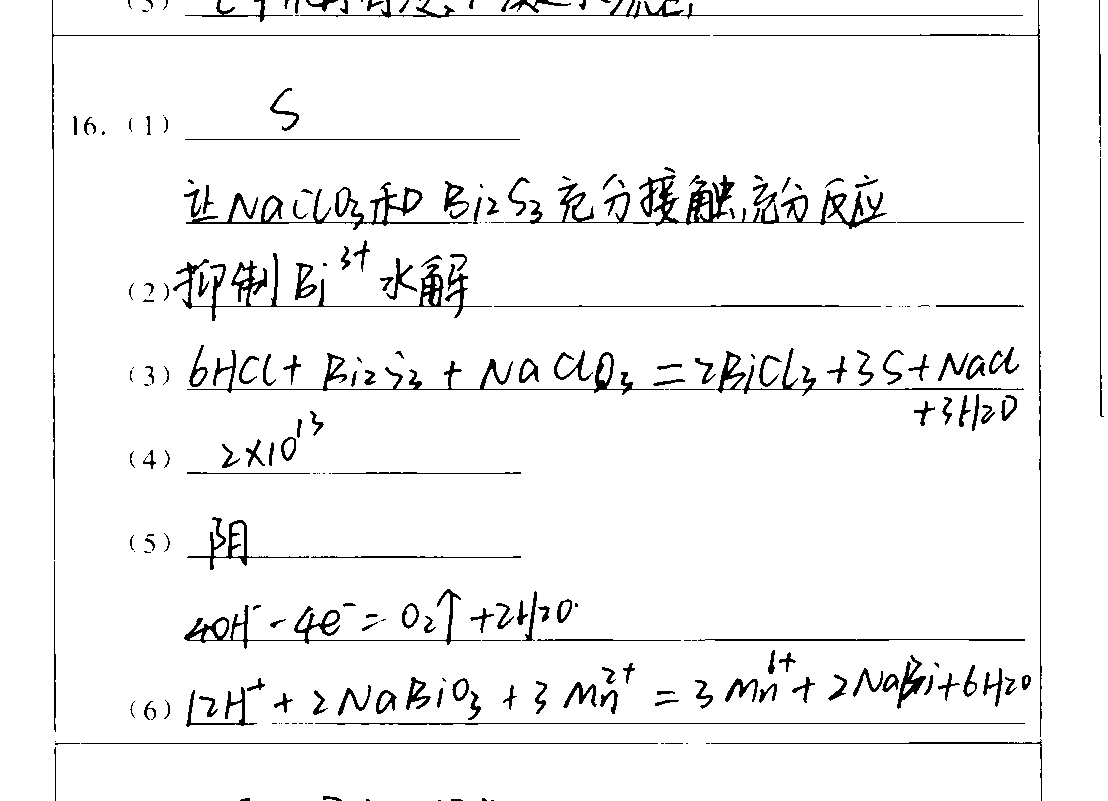 (5)
16. (1) S
让NaClO₃和 Bi₂S₃充分接触,充分反应
(2) 抑制Bi³⁺水解
(3) 6HCl + Bi₂S₃ + NaClO₃ = 2BiCl₃ + 3S + NaCl
+3H₂O
(4) 2×10¹³
(5) 阴
4OH⁻ - 4e⁻ = O₂↑ + 2H₂O
(6) 12H⁺ + 2NaBiO₃ + 3Mn²⁺ = 3Mn⁶⁺ + 2NaBi + 6H₂O